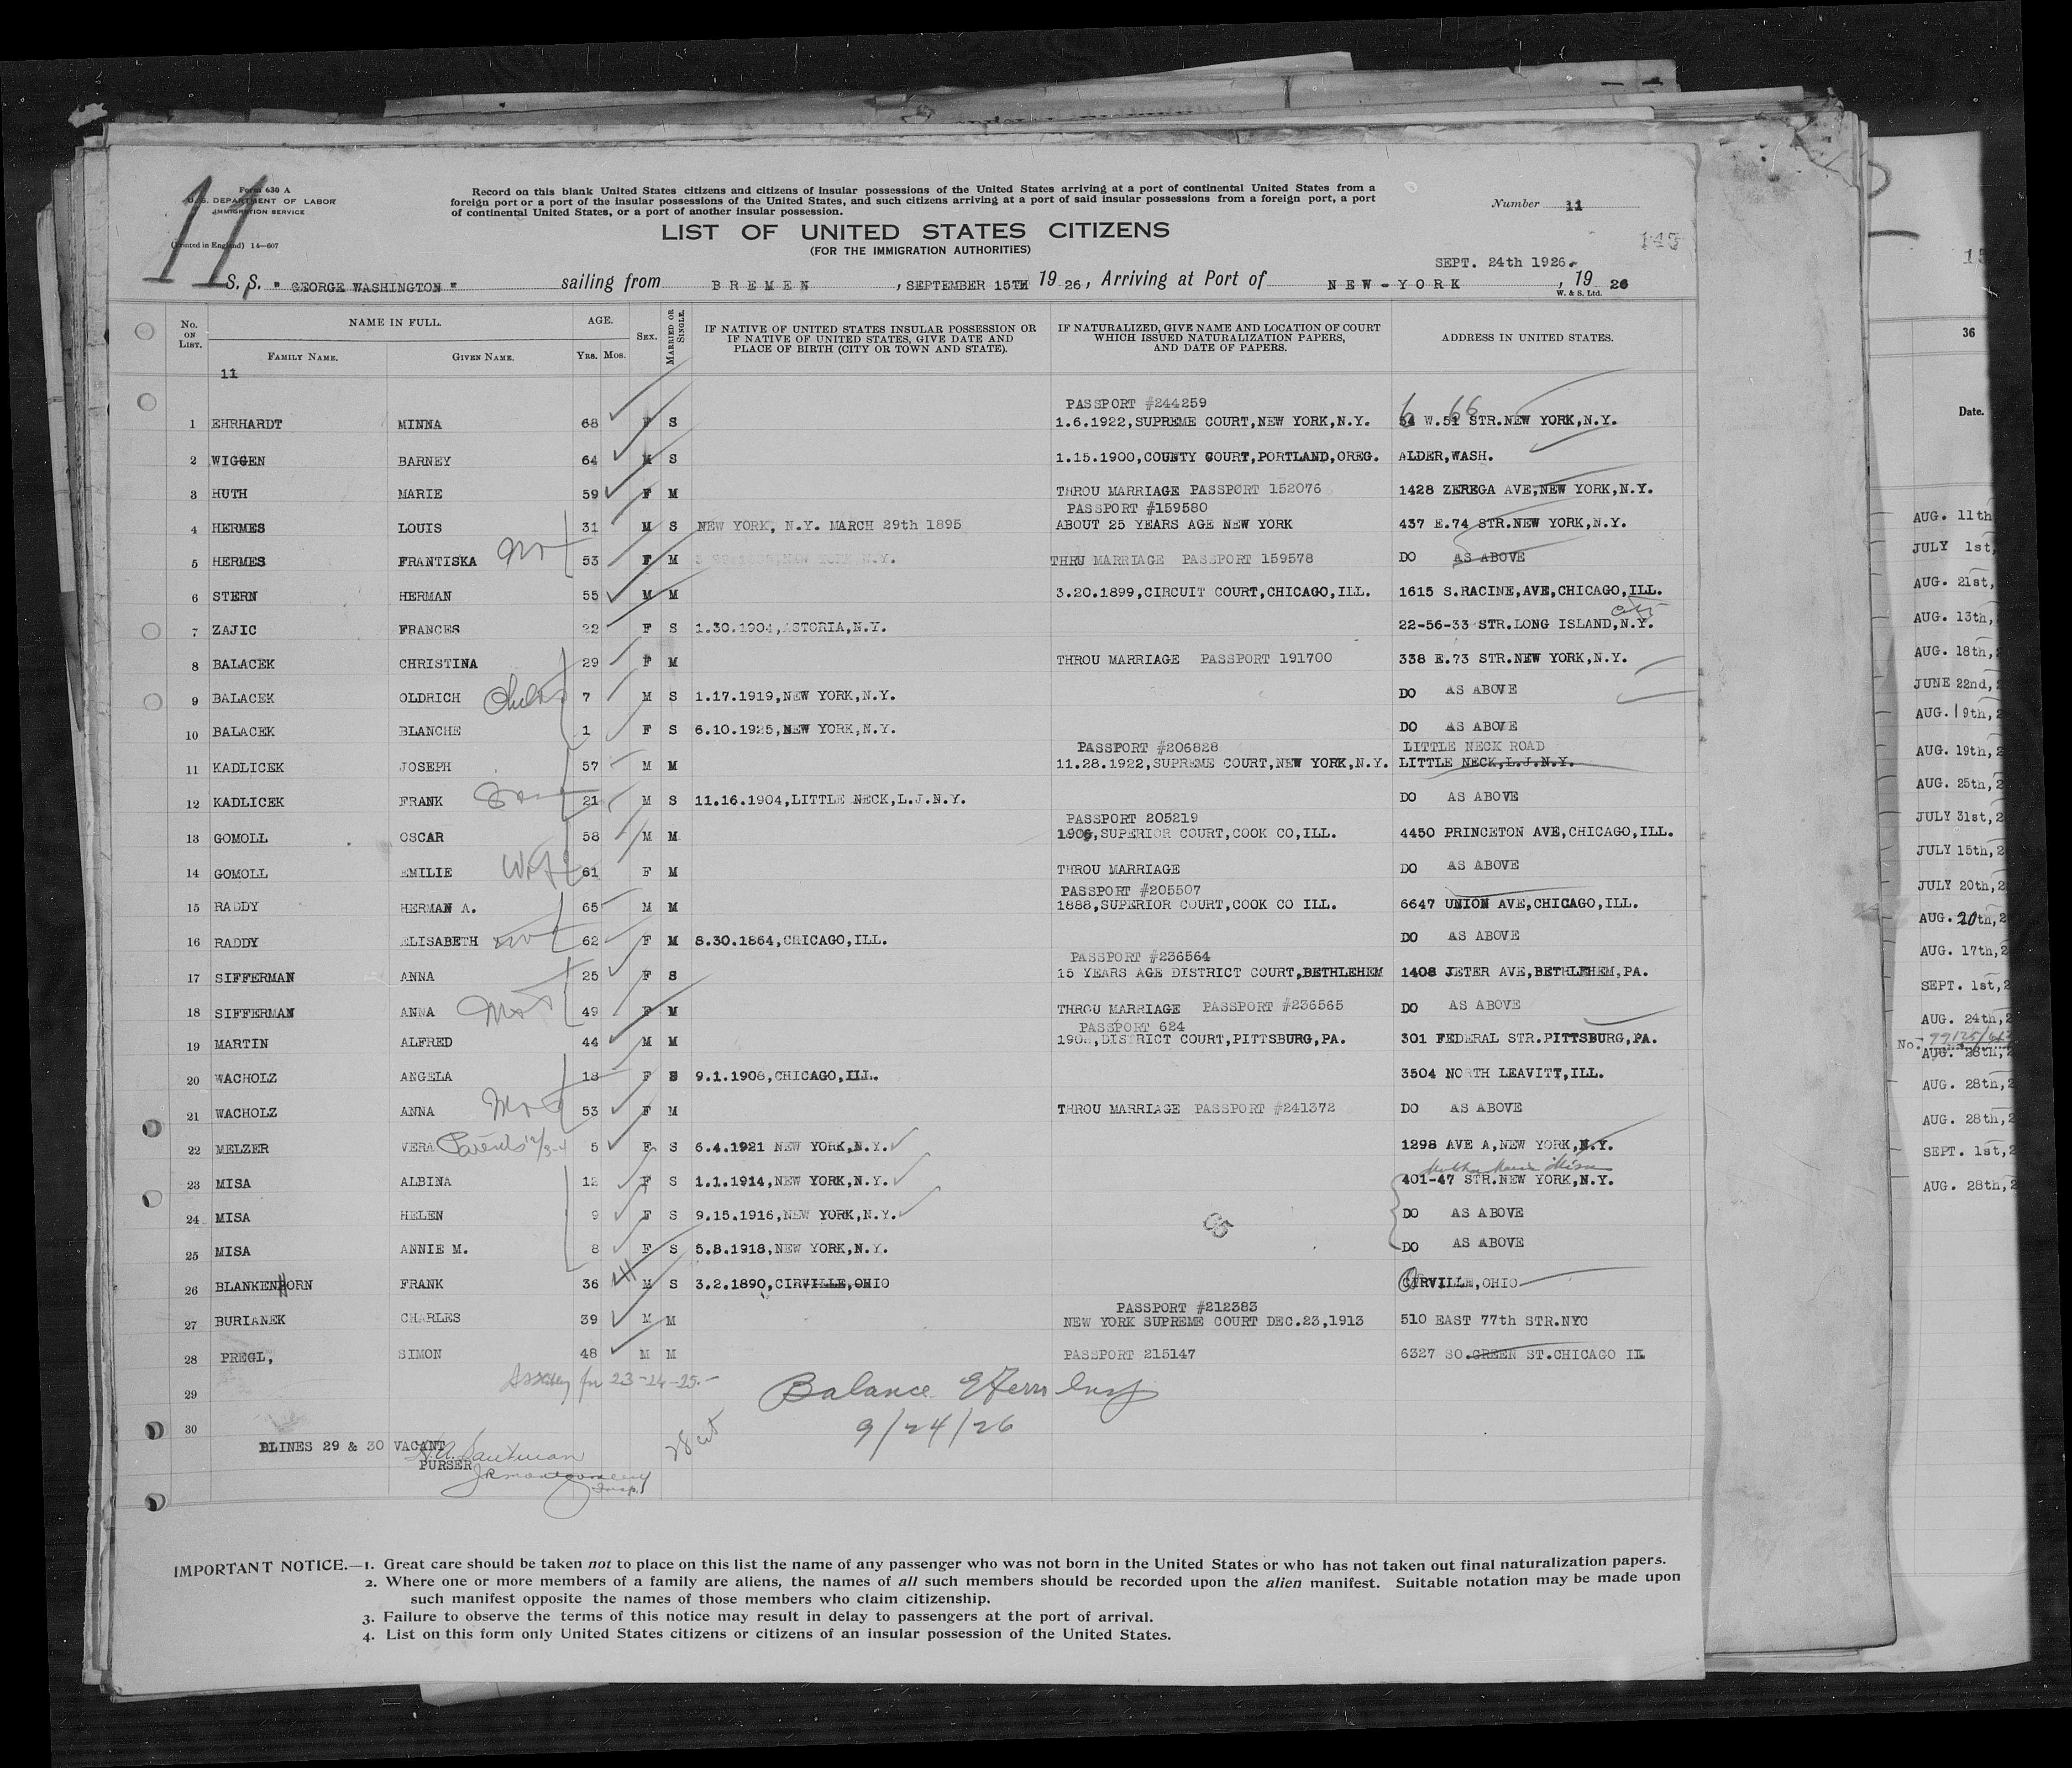 11
Form 630 A
U.S. DEPARTMENT OF LABOR
IMMIGRATION SERVICE
(Printed in England) 14—607
Record on this blank United States citizens and citizens of insular possessions of the United States arriving at a port of continental United States from a
foreign port or a port of the insular possessions of the United States, and such citizens arriving at a port of said insular possessions from a foreign port, a port
of continental United States, or a port of another insular possession.
Number 11
LIST OF UNITED STATES CITIZENS
(FOR THE IMMIGRATION AUTHORITIES)
145
SEPT. 24th 1926.
S. S. " GEORGE WASHINGTON " sailing from BREMEN, SEPTEMBER 15TH 19 26, Arriving at Port of NEW-YORK, 19 26
W. & S. Ltd.
No. ON LIST. NAME IN FULL. AGE. SEX. MARRIED OR SINGLE. IF NATIVE OF UNITED STATES INSULAR POSSESSION OR IF NATIVE OF UNITED STATES, GIVE DATE AND PLACE OF BIRTH (CITY OR TOWN AND STATE). IF NATURALIZED, GIVE NAME AND LOCATION OF COURT WHICH ISSUED NATURALIZATION PAPERS, AND DATE OF PAPERS. ADDRESS IN UNITED STATES.
FAMILY NAME. GIVEN NAME. YRS. MOS.
11
PASSPORT #244259
1 EHRHARDT MINNA 68 F S 1.6.1922,SUPREME COURT,NEW YORK,N.Y. 6 W. 66 STR.NEW YORK,N.Y.
2 WIGGEN BARNEY 64 M S 1.15.1900,COUNTY COURT,PORTLAND,OREG. ALDER,WASH.
3 HUTH MARIE 59 F M THROU MARRIAGE PASSPORT 152076 1428 ZEREGA AVE,NEW YORK,N.Y.
PASSPORT #159580
4 HERMES LOUIS 31 M S NEW YORK, N.Y. MARCH 29th 1895 ABOUT 25 YEARS AGE NEW YORK 437 E.74 STR.NEW YORK,N.Y.
5 HERMES FRANTISKA 53 F M NEW YORK N.Y. THRU MARRIAGE PASSPORT 159578 DO AS ABOVE
6 STERN HERMAN 55 M M 3.20.1899,CIRCUIT COURT,CHICAGO,ILL. 1615 S.RACINE,AVE,CHICAGO,ILL.
city
7 ZAJIC FRANCES 22 F S 1.30.1904,ASTORIA,N.Y. 22-56-33 STR.LONG ISLAND,N.Y.
8 BALACEK CHRISTINA 29 F M THROU MARRIAGE PASSPORT 191700 338 E.73 STR.NEW YORK,N.Y.
9 BALACEK OLDRICH 7 M S 1.17.1919,NEW YORK,N.Y. DO AS ABOVE
10 BALACEK BLANCHE 1 F S 6.10.1925,NEW YORK,N.Y. DO AS ABOVE
PASSPORT #206828 LITTLE NECK ROAD
11 KADLICEK JOSEPH 57 M M 11.28.1922,SUPREME COURT,NEW YORK,N.Y. LITTLE NECK,L.J.N.Y.
12 KADLICEK FRANK Son 21 M S 11.16.1904,LITTLE NECK,L.J.N.Y. DO AS ABOVE
PASSPORT 205219
13 GOMOLL OSCAR 58 M M 1906,SUPERIOR COURT,COOK CO,ILL. 4450 PRINCETON AVE,CHICAGO,ILL.
14 GOMOLL EMILIE Wife 61 F M THROU MARRIAGE DO AS ABOVE
PASSPORT #205507
15 RADDY HERMAN A. 65 M M 1888,SUPERIOR COURT,COOK CO ILL. 6647 UNION AVE,CHICAGO,ILL.
16 RADDY ELISABETH 62 F M 8.30.1864,CHICAGO,ILL. DO AS ABOVE
PASSPORT #236564
17 SIFFERMAN ANNA 25 F S 15 YEARS AGE DISTRICT COURT,BETHLEHEM 1408 JETER AVE,BETHLEHEM,PA.
18 SIFFERMAN ANNA 49 F M THROU MARRIAGE PASSPORT #236565 DO AS ABOVE
PASSPORT 624
19 MARTIN ALFRED 44 M M DISTRICT COURT,PITTSBURG,PA. 301 FEDERAL STR.PITTSBURG,PA.
20 WACHOLZ ANGELA 18 F S 9.1.1908,CHICAGO,ILL. 3504 NORTH LEAVITT,ILL.
21 WACHOLZ ANNA 53 F M THROU MARRIAGE PASSPORT #241372 DO AS ABOVE
22 MELZER VERA Parents 5 F S 6.4.1921 NEW YORK,N.Y. 1298 AVE A,NEW YORK,N.Y.
23 MISA ALBINA 12 F S 1.1.1914,NEW YORK,N.Y. 401-47 STR.NEW YORK,N.Y.
24 MISA HELEN 9 F S 9.15.1916,NEW YORK,N.Y. DO AS ABOVE
25 MISA ANNIE M. 8 F S 5.8.1918,NEW YORK,N.Y. DO AS ABOVE
26 BLANKENHORN FRANK 36 M S 3.2.1890,CIRVILLE,OHIO CIRVILLE,OHIO
PASSPORT #212383
27 BURIANEK CHARLES 39 M M NEW YORK SUPREME COURT DEC.23,1913 510 EAST 77th STR.NYC
28 PREGL, SIMON 48 M M PASSPORT 215147 6327 SO.GREEN ST.CHICAGO IL
for 23-24-25.-
29 Balance
30 9/24/26
BLINES 29 & 30 VACANT
PURSER
Insp.
IMPORTANT NOTICE.—1. Great care should be taken not to place on this list the name of any passenger who was not born in the United States or who has not taken out final naturalization papers.
2. Where one or more members of a family are aliens, the names of all such members should be recorded upon the alien manifest. Suitable notation may be made upon
such manifest opposite the names of those members who claim citizenship.
3. Failure to observe the terms of this notice may result in delay to passengers at the port of arrival.
4. List on this form only United States citizens or citizens of an insular possession of the United States.
36
Date.
AUG. 11th
JULY 1st,
AUG. 21st,
AUG. 13th,
AUG. 18th,
JUNE 22nd,
AUG. 19th,
AUG. 19th,
AUG. 25th,
JULY 31st,
JULY 15th,
JULY 20th,
AUG. 20th,
AUG. 17th,
SEPT. 1st,
AUG. 24th,
No.
AUG. 28th,
AUG. 28th,
AUG. 28th,
SEPT. 1st,
AUG. 28th,